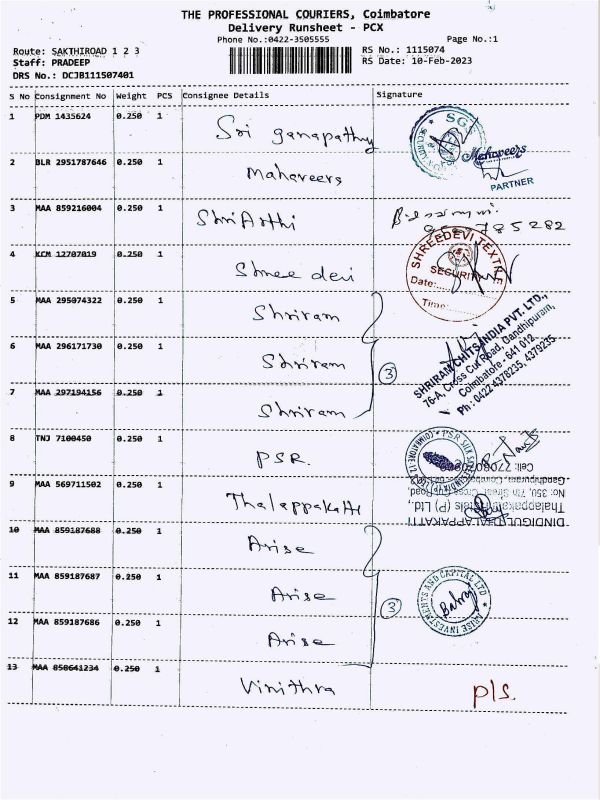 THE PROFESSIONAL COURIERS, Coimbatore
Delivery Runsheet - PCX
Phone No.:0422-3505555
Page No.:1
Route: SAKTHIROAD 1 2 3
RS No.: 1115074
Staff: PRADEEP
RS Date: 10-Feb-2023
DRS No.: DCJB111507401
S No Consignment No Weight PCS Consignee Details Signature
1 PDM 1435624 0.250 1 Sri ganapathy
SGS
2 BLR 2951787646 0.250 1 Mahaveers
Mahaveers
PARTNER
3 MAA 859216004 0.250 1 Shri Arthi
4 KCM 12707019 0.250 1 Shree devi
SHREEDEVI TEXTILE
SECURITY
Date:
Time:
5 MAA 295074322 0.250 1 Shriram
6 MAA 296171730 0.250 1 Shriram
7 MAA 297194156 0.250 1 Shriram
3
SHRIRAM CHITS INDIA PVT. LTD.,
76-A, Cross Cut Road, Gandhipuram,
Coimbatore - 641 012
Ph : 0422 4378235, 4379235
8 TNJ 7100450 0.250 1 PSR.
9 MAA 569711502 0.250 1 Thalappakatti
DINDIGUL THALAPPAKATTI
Thalappakatti Hotels (P) Ltd.,
No: 350, 7th Street, Cross Cut Road,
10 MAA 859187688 0.250 1 Arise
11 MAA 859187687 0.250 1 Arise
12 MAA 859187686 0.250 1 Arise
3
ARISE INVESTMENTS AND CAPITAL LTD
13 MAA 858641234 0.250 1 Vinithra
p/s.